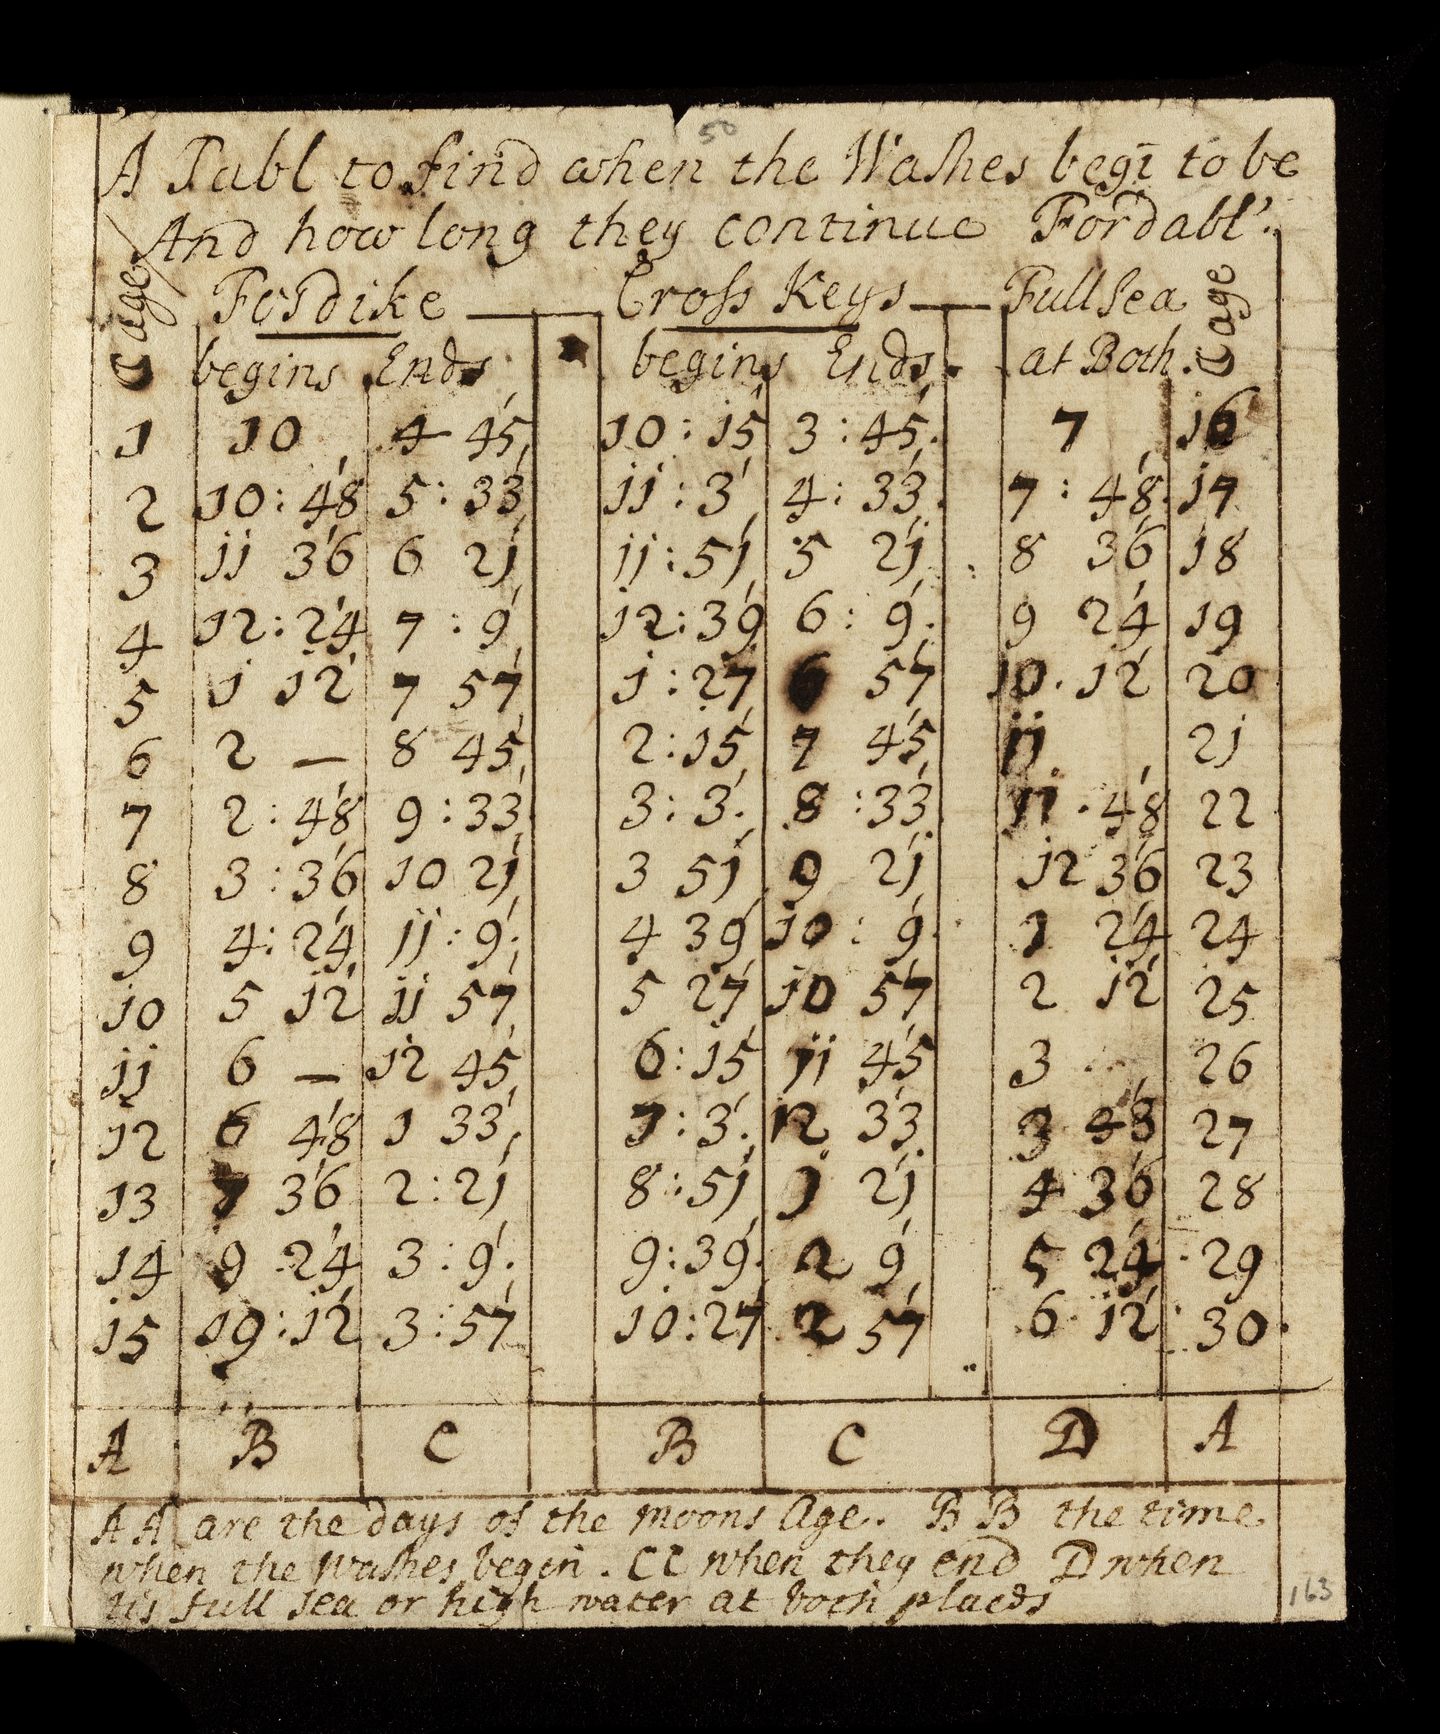 50
A Tabl to find when the Washes begī to be
And how long they continue Fordabl'.
☾ age Fosdike Cross Keys Full Sea ☾ age
begins Ends begins Ends at Both.
1 10 4 45' 10:15' 3:45' 7 16
2 10:48' 5:33' 11:3' 4:33' 7:48' 17
3 11 36' 6 21' 11:51' 5 21' 8 36' 18
4 12:24' 7:9' 12:39' 6:9' 9 24' 19
5 1 12' 7 57' 1:27' 6 57' 10.12' 20
6 2 — 8 45' 2:15' 7 45' 11 21
7 2:48' 9:33' 3:3' 8:33' 11.48' 22
8 3:36' 10 21' 3 51' 9 21' 12 36' 23
9 4:24' 11:9' 4 39' 10:9' 1 24' 24
10 5 12' 11 57' 5 27' 10 57' 2 12' 25
11 6 — 12 45' 6:15' 11 45' 3 26
12 6 48' 1 33' 7:3' 12 33' 3 48' 27
13 7 36' 2:21' 8:51' 1 21' 4 36' 28
14 9 24' 3:9' 9:39' 2 9' 5 24' 29
15 10:12' 3:57' 10:27' 2 57' 6 12' 30
A B C B C D A
A A are the days of the moons Age. B B the time
when the Washes begin. CC when they end D when
tis full sea or high water at both places
163